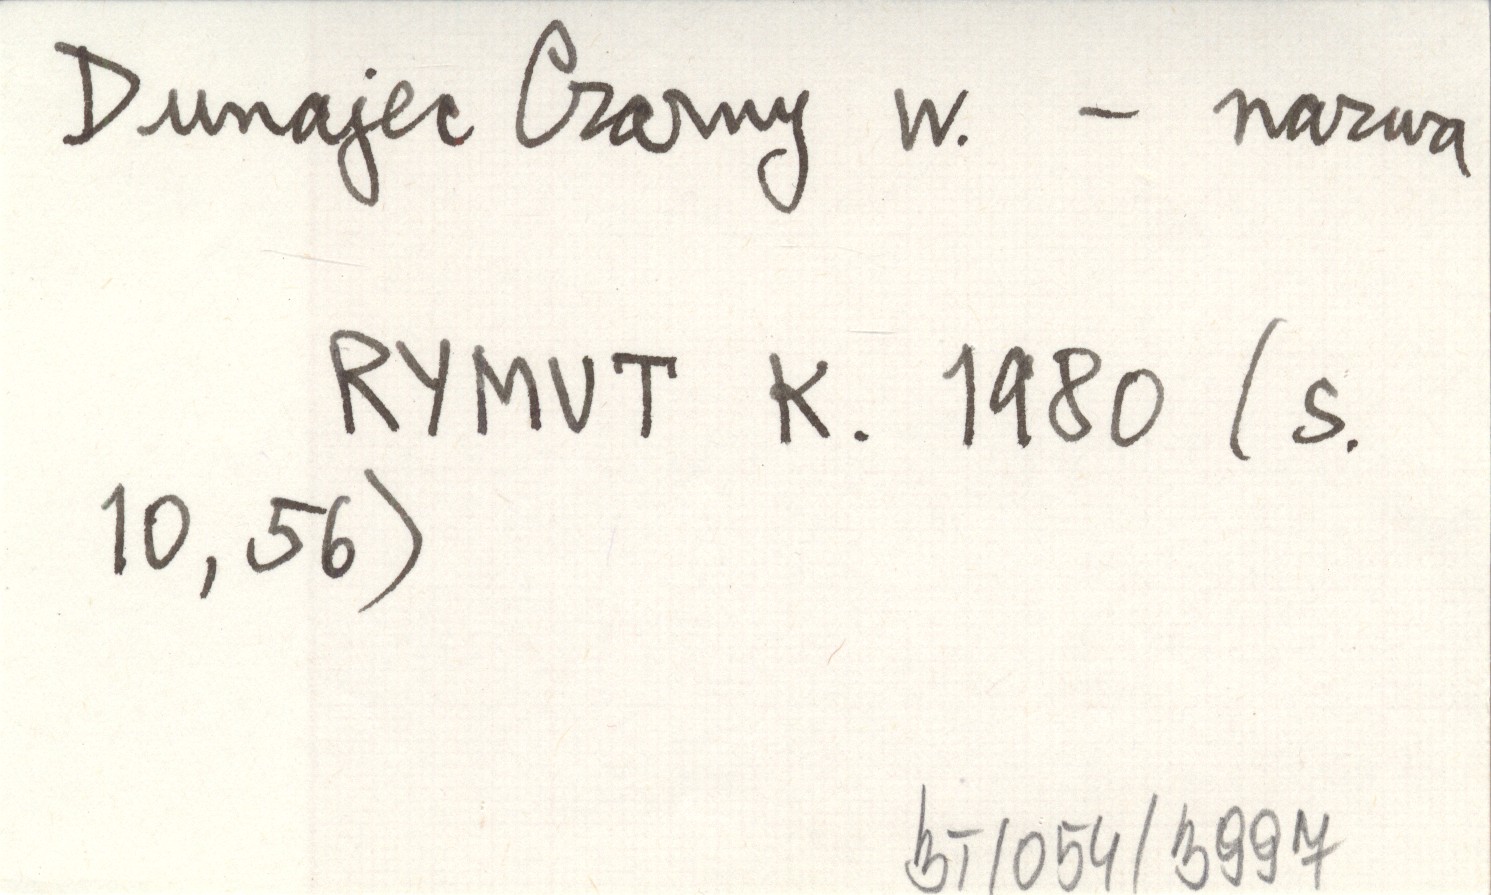 Dunajec Czarny w. - nazwa
RYMUT K. 1980 (s.
10, 56)
BT/054/3997